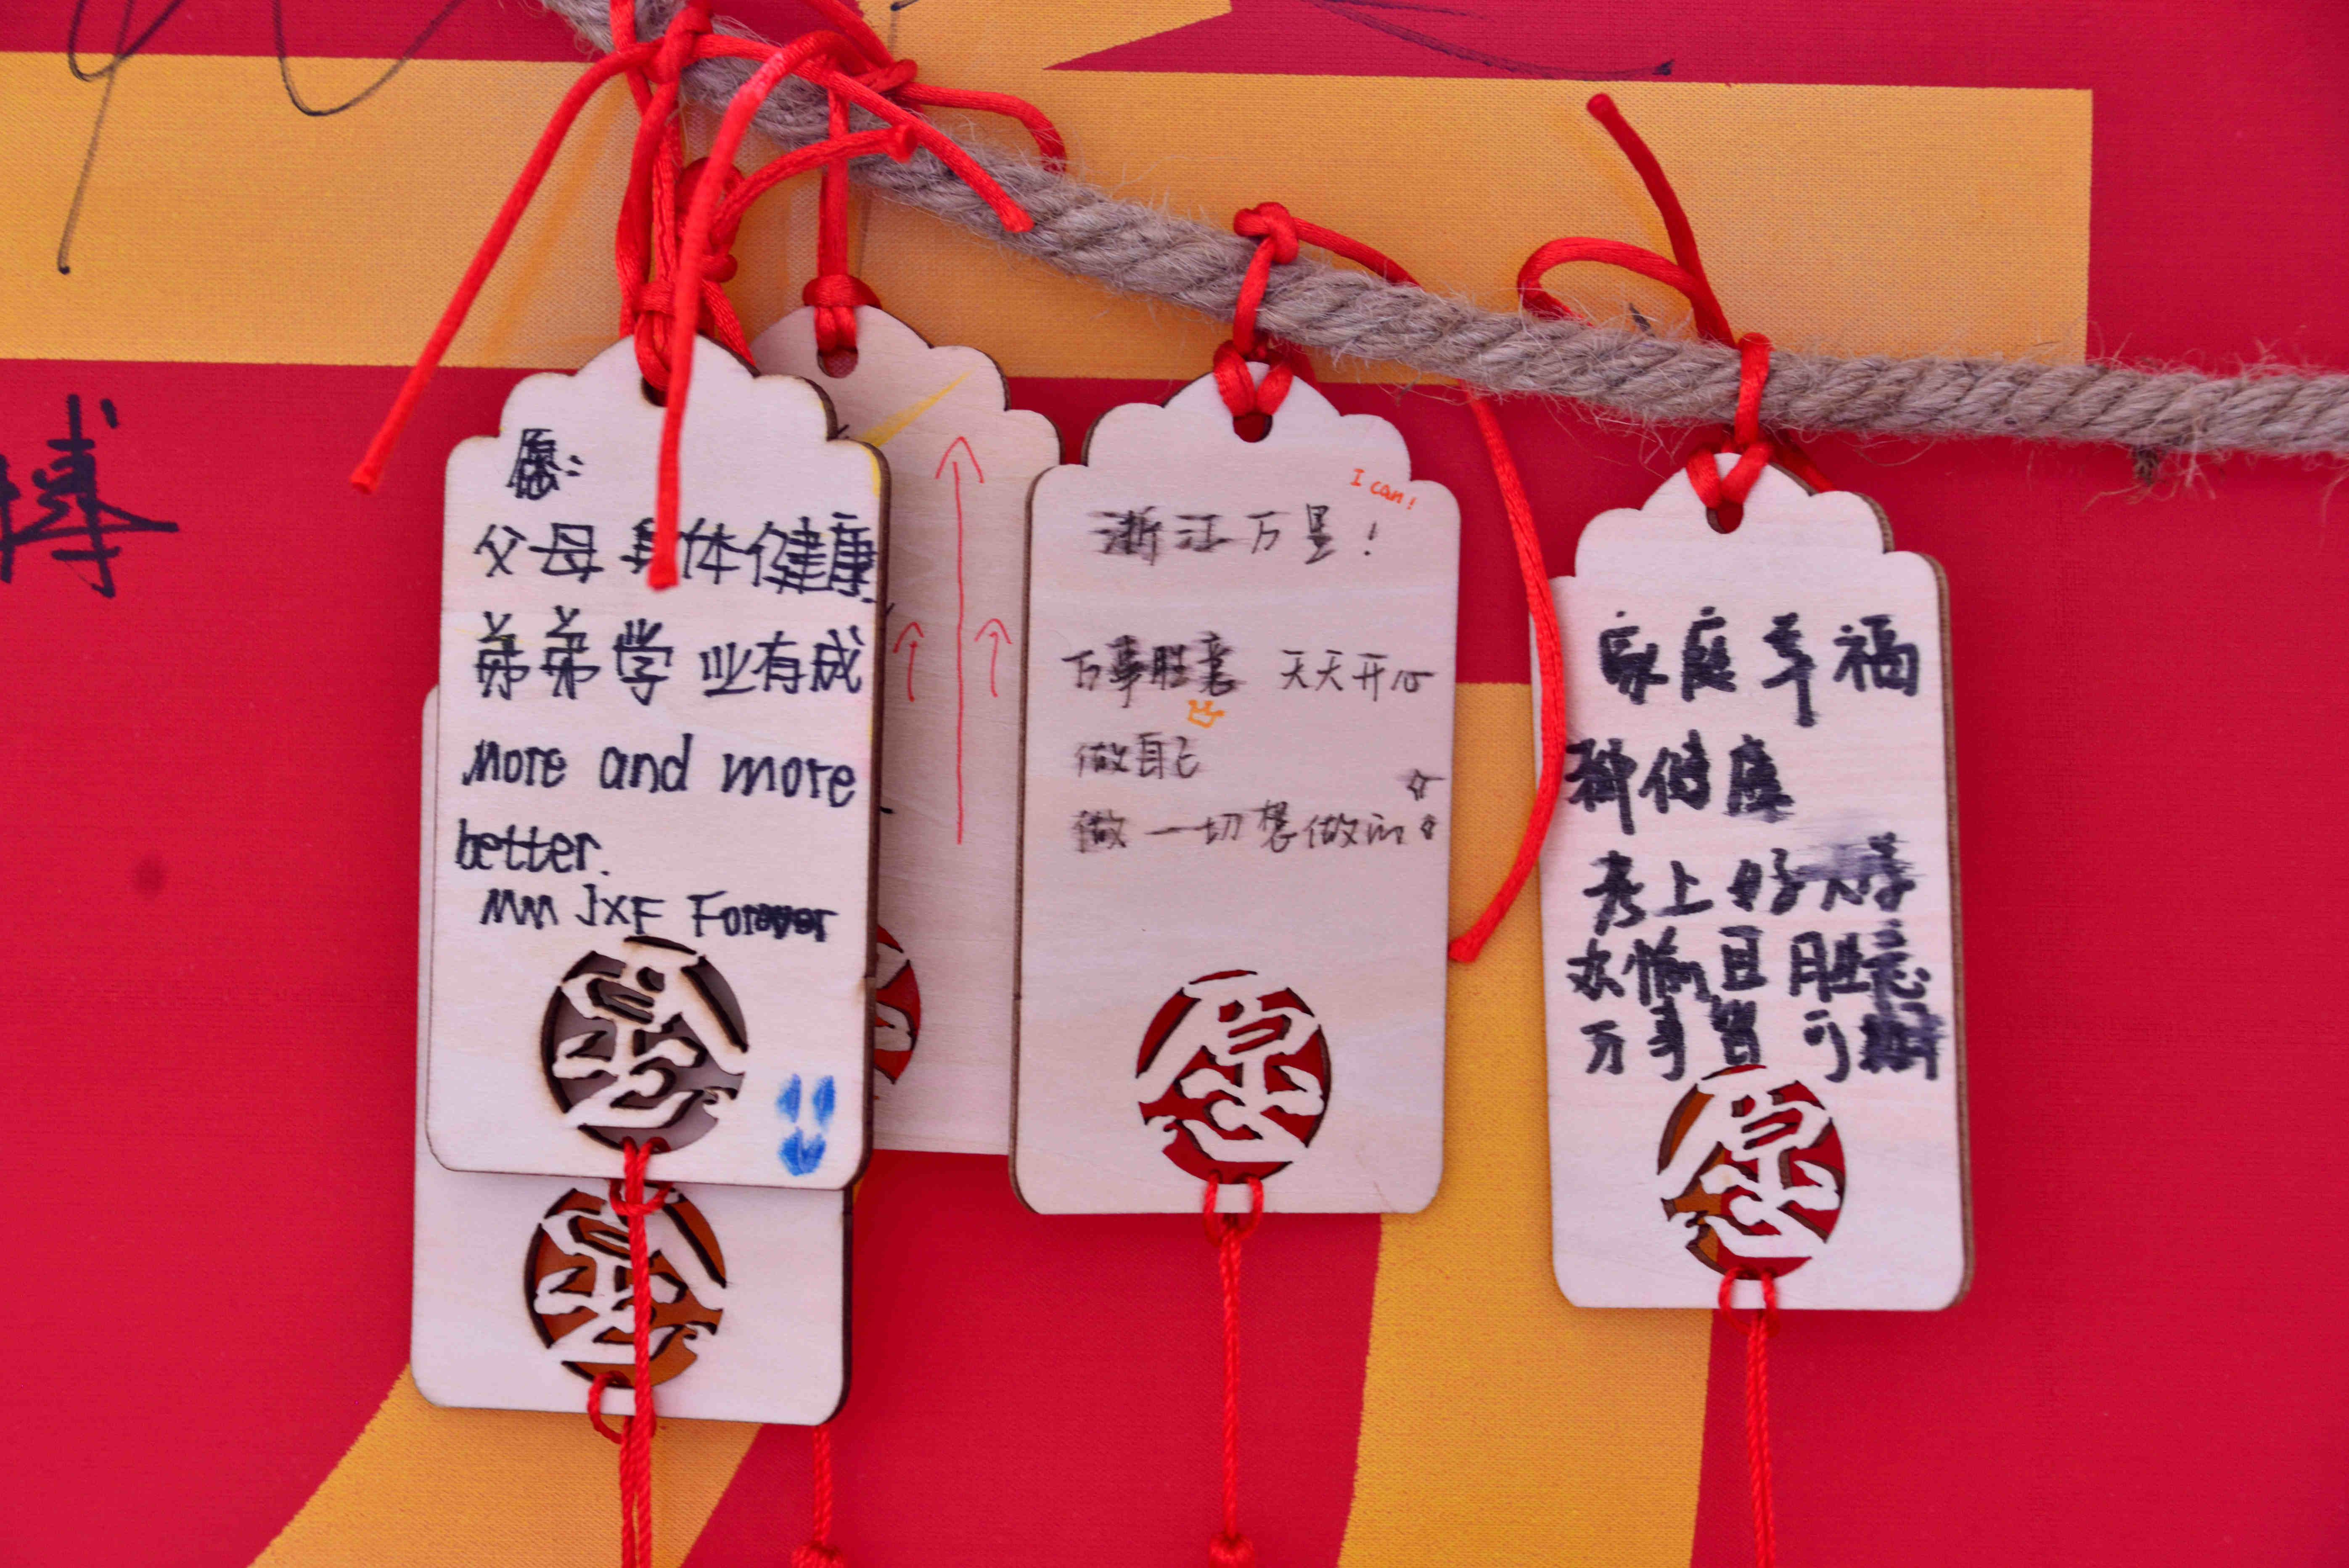 博
愿:
父母身体健康
弟弟学业有成
More and more
better.
MM JXF Forever
愿
愿
I can!
浙江万里!
万事胜意 天天开心
做自己
做一切想做的
愿
家庭幸福
身体健康
考上好大学
欢愉且胜意
万事皆可期
愿